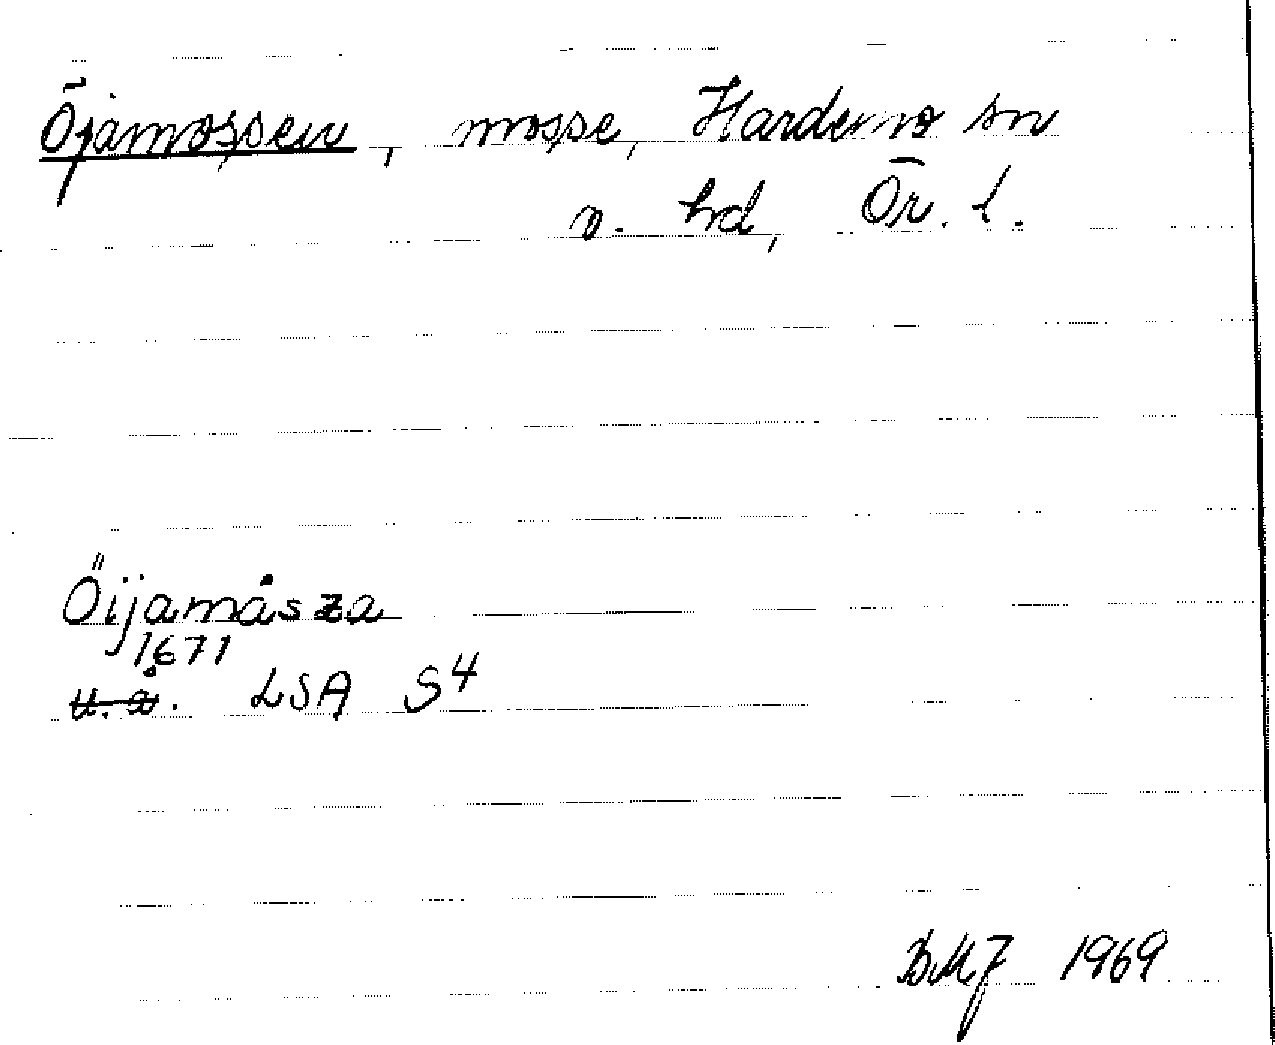 Öjamossen, mosse, Hardemo sn
o. hd, Ör. l.
Öijamåsza
1671
u.å. LSA S4
BMJ 1969